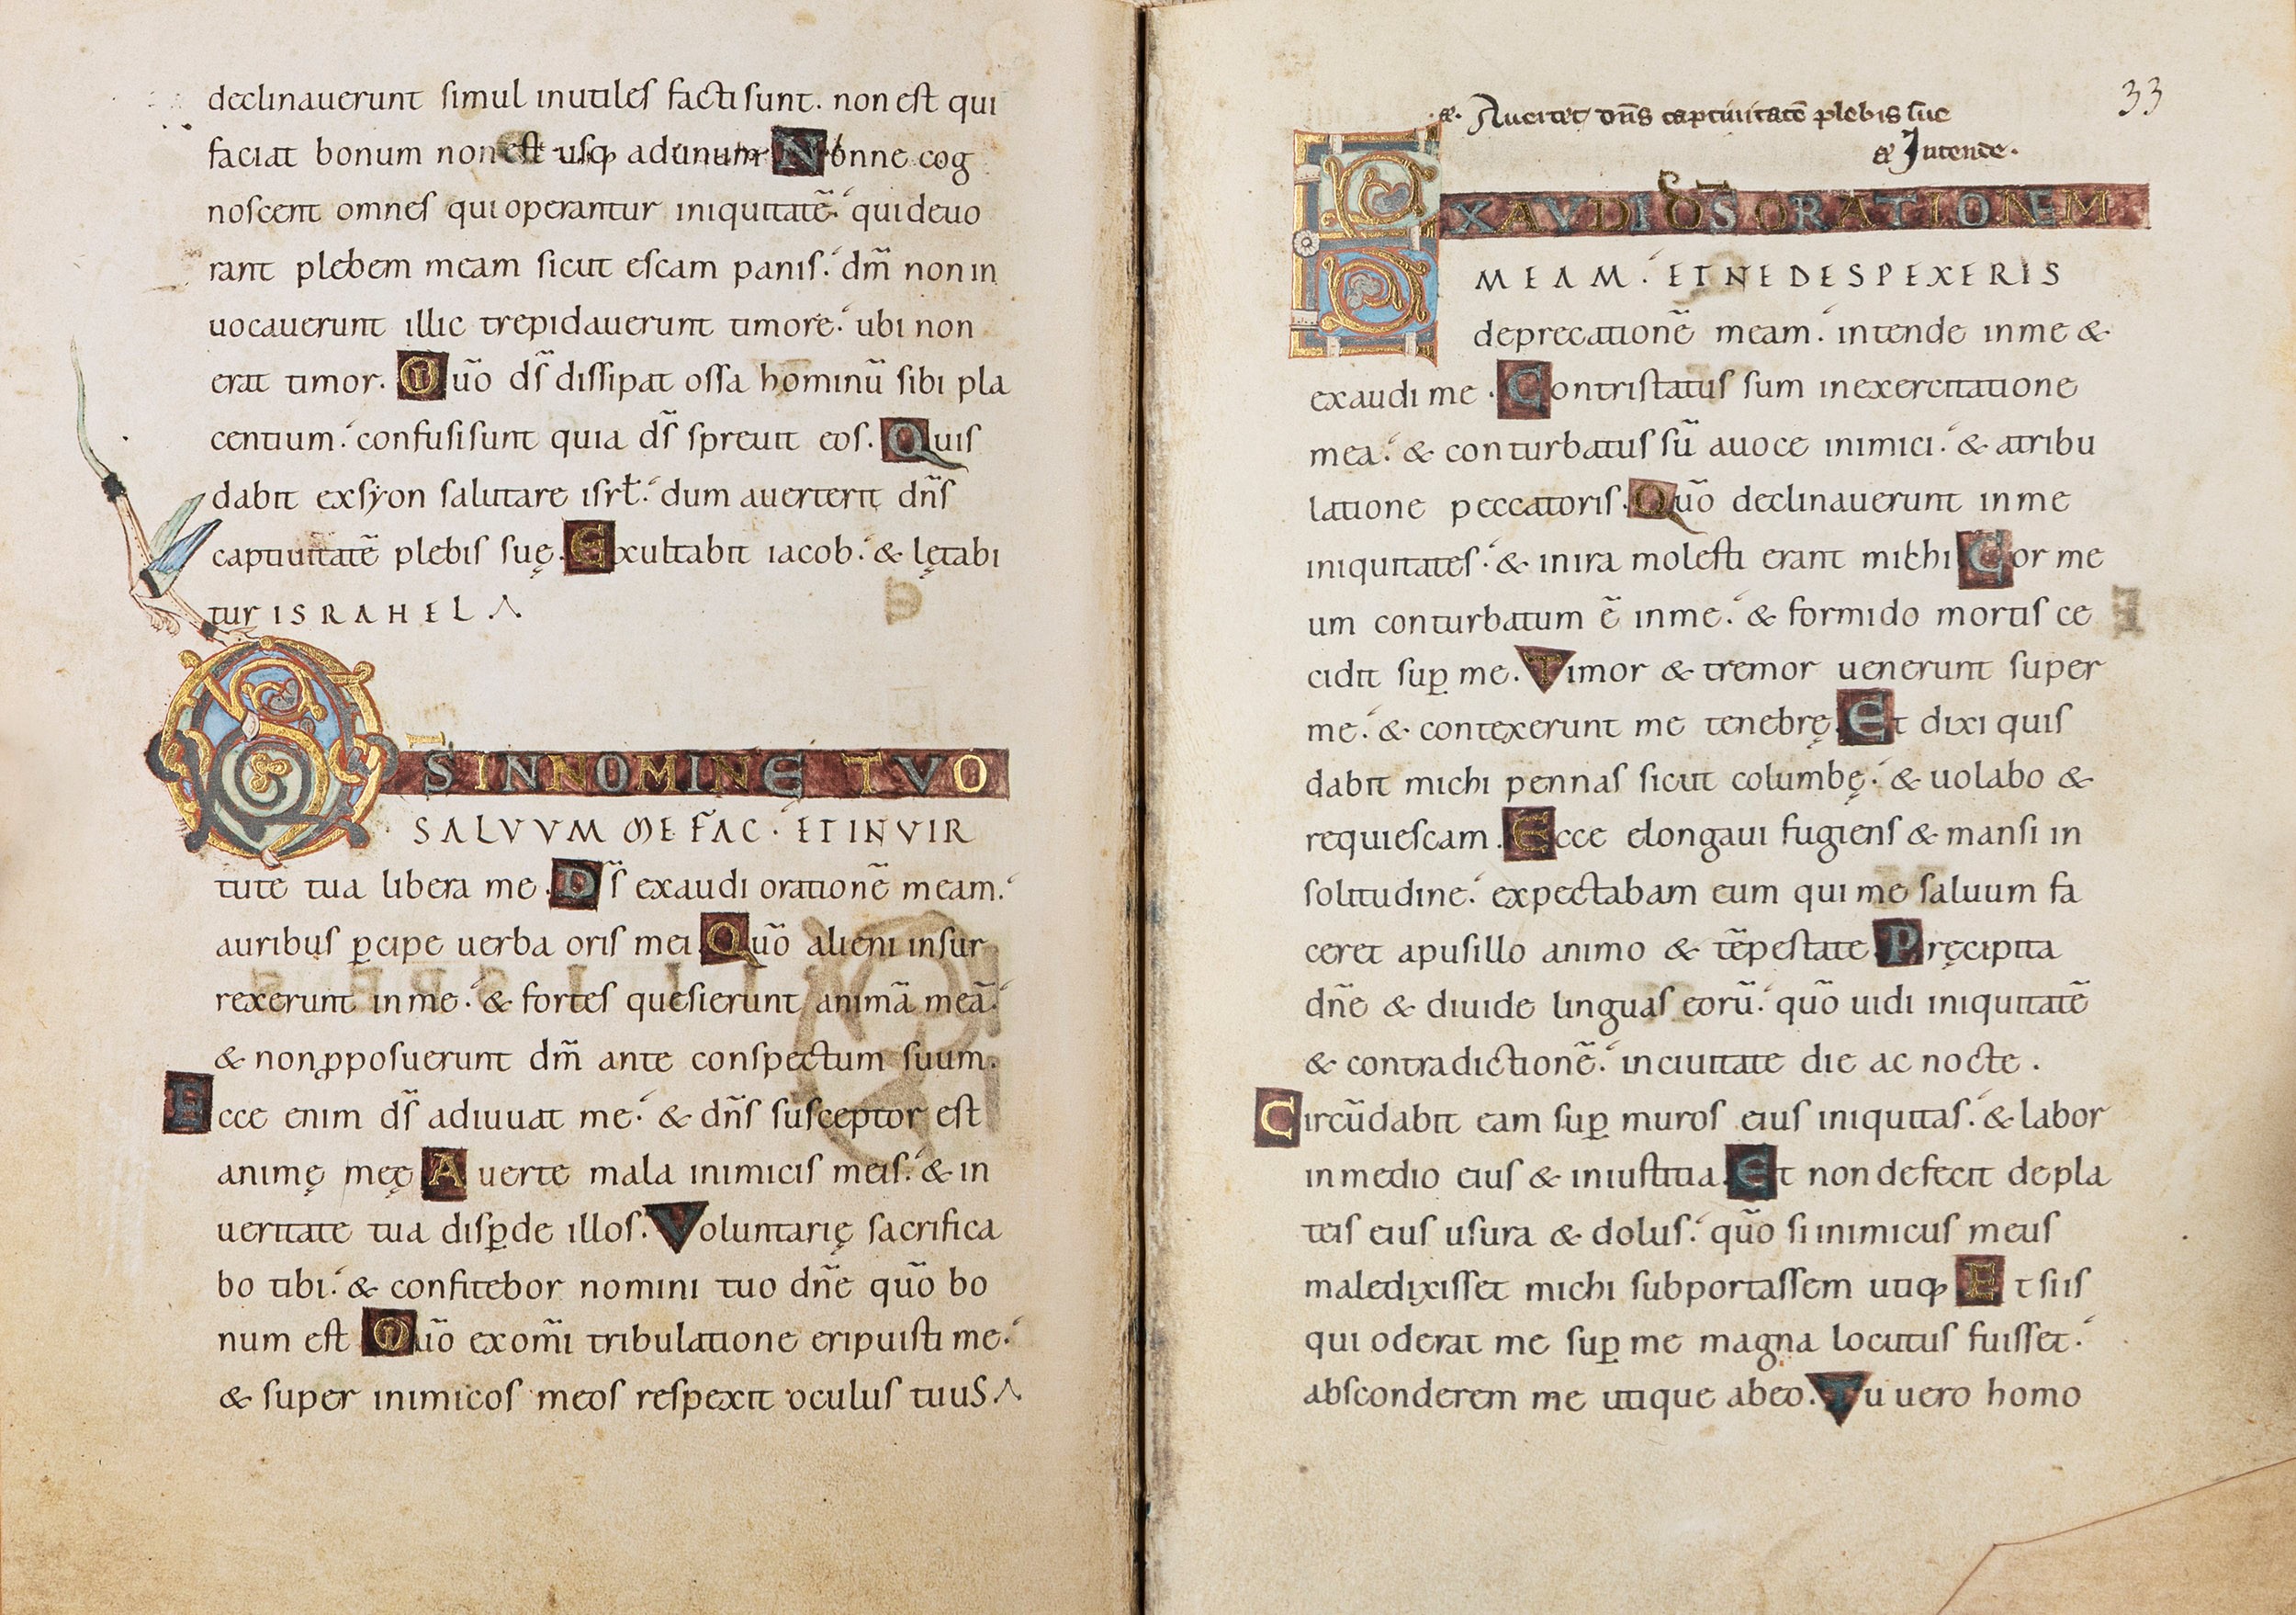 declinauerunt simul inutiles facti sunt. non est qui
faciat bonum non est usq; ad unum Nonne cog
noscent omnes qui operantur iniquitatē. qui deuo
rant plebem meam sicut escam panis. dm̄ non in
uocauerunt illic trepidauerunt timore. ubi non
erat timor. Quō ds̄ dissipat ossa hominū sibi pla
centium. confusi sunt quia ds̄ spreuit eos. Quis
dabit exsyon salutare isrł. dum auerterit dn̄s
captiuitatē plebis suę. Exultabit iacob. & lętabi
tur ISRAHEL.
DS̄ IN NOMINE TVO
SALVVM ME FAC. ET IN VIR
tute tua libera me. Ds̄ exaudi orationē meam.
auribus ꝑcipe uerba oris mei Quō alieni insur
rexerunt in me. & fortes quesierunt animā meā.
& non ꝓposuerunt dm̄ ante conspectum suum.
Ecce enim ds̄ adiuuat me. & dn̄s susceptor est
animę meę Auerte mala inimicis meis. & in
ueritate tua disꝑde illos. Voluntarię sacrifica
bo tibi. & confitebor nomini tuo dn̄e quō bo
num est Quō ex om̄i tribulatione eripuisti me.
& super inimicos meos respexit oculus tuus.
33
Auertet dn̄s captiuitatē plebis sue
Intende.
EXAVDI DS̄ ORATIONEM
MEAM. ET NE DESPEXERIS
deprecationē meam. intende in me &
exaudi me. Contristatus sum in exercitatione
mea. & conturbatus sū a uoce inimici. & a tribu
latione peccatoris. Quō declinauerunt in me
iniquitates. & in ira molesti erant michi Cor me
um conturbatum ē in me. & formido mortis ce
cidit suꝑ me. Timor & tremor uenerunt super
me. & contexerunt me tenebrę. Et dixi quis
dabit michi pennas sicut columbę. & uolabo &
requiescam. Ecce elongaui fugiens & mansi in
solitudine. expectabam eum qui me saluum fa
ceret apusillo animo & tēpestate Pręcipita
dn̄e & diuide linguas eorū. quō uidi iniquitatē
& contradictionē. in ciuitate die ac nocte.
Circūdabit eam suꝑ muros eius iniquitas. & labor
in medio eius & iniustitia. Et non defecit de pla
teis eius usura & dolus. quō si inimicus meus
maledixisset michi subportassem utiq; Et si is
qui oderat me suꝑ me magna locutus fuisset.
absconderem me utique ab eo. Tu uero homo